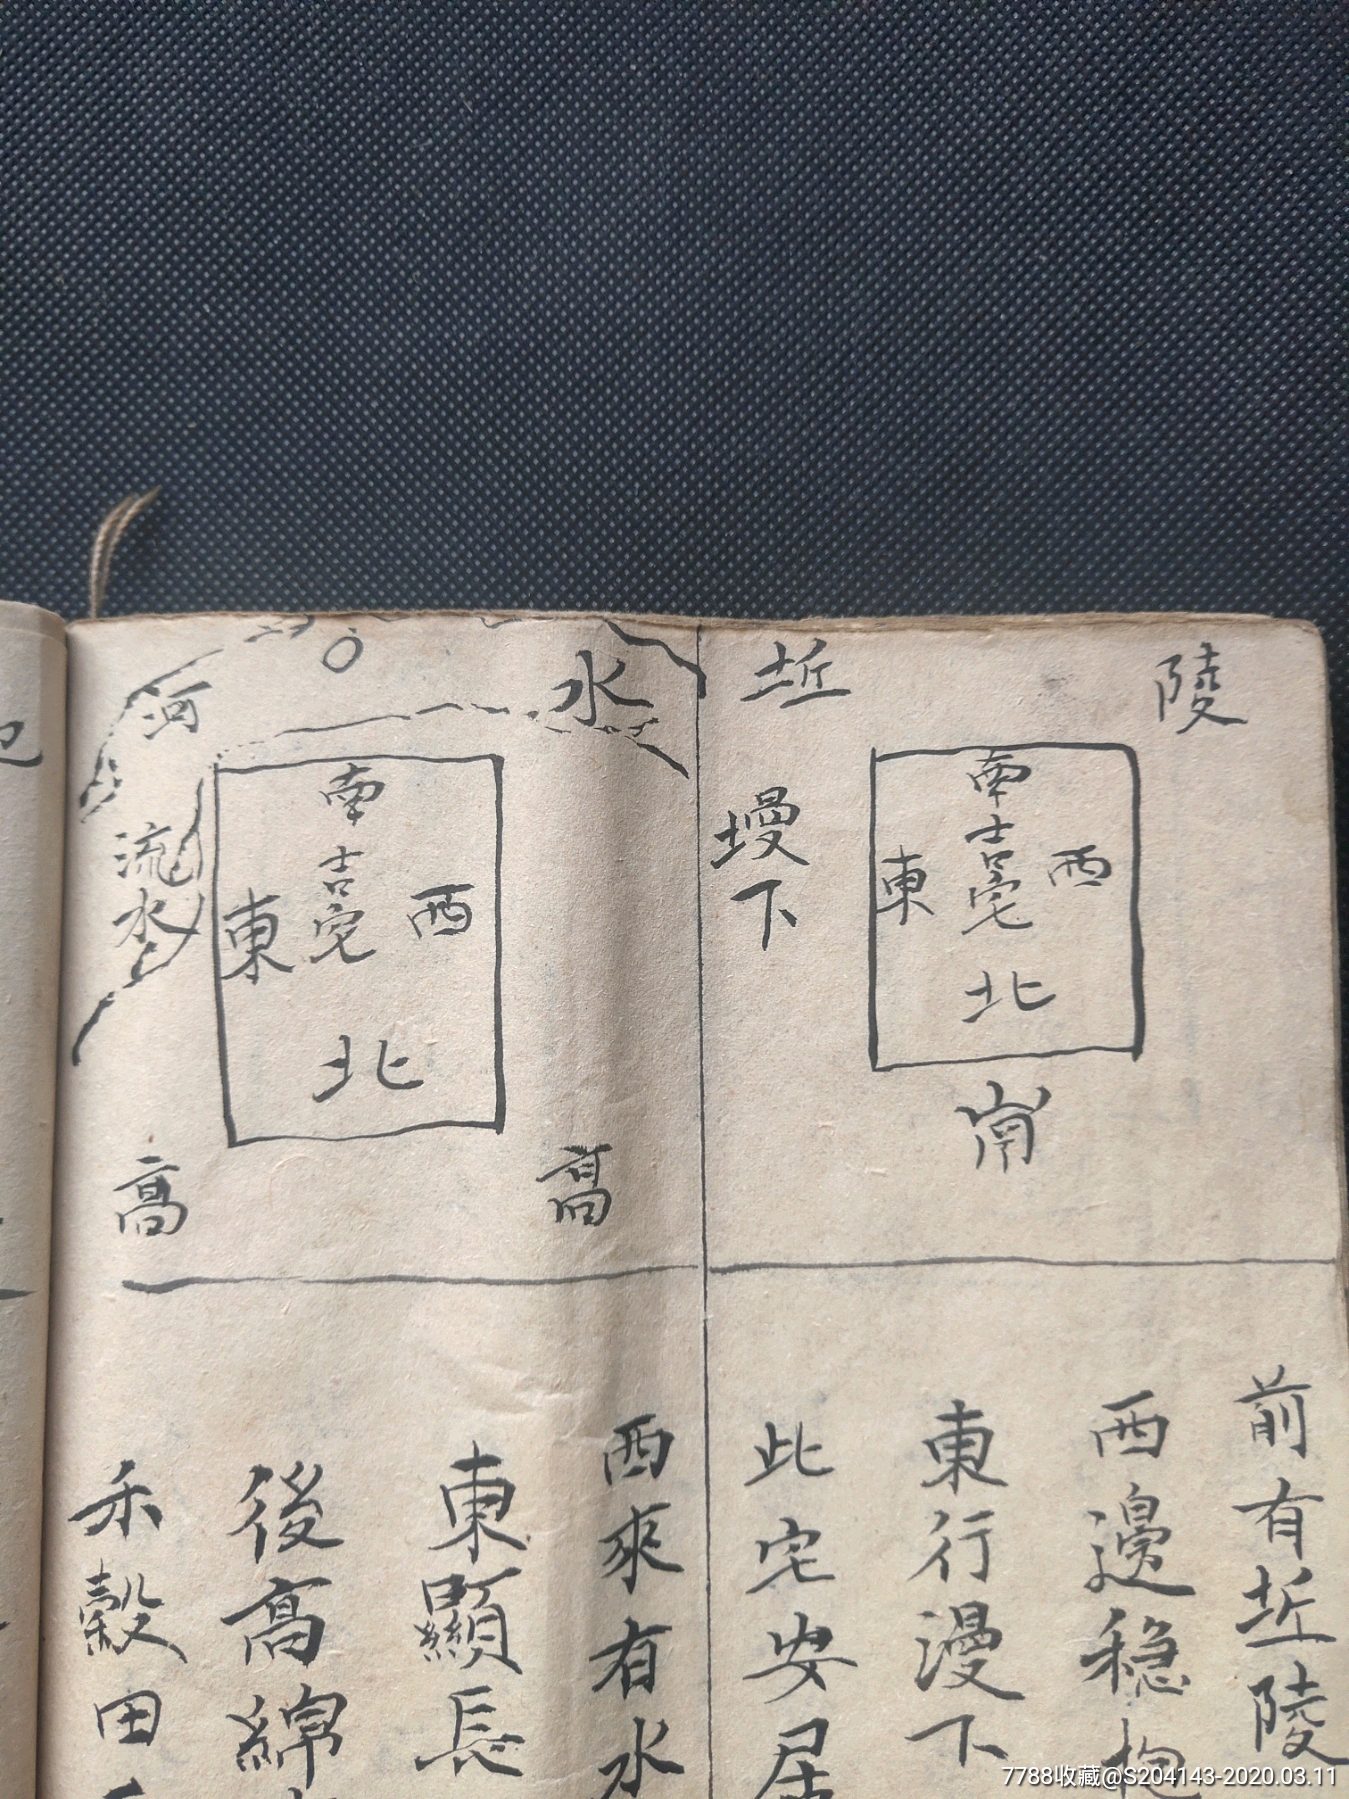 坵
陵
墁
下
南
吉宅
東
西
北
崗
河
水
流水
南
吉宅
東
西
北
高
高
前有坵陵
西邊稳抱
東行漫下
此宅安居
西來有水
東顯長
後高綿
禾穀田
7788收藏@S204143-2020.03.11